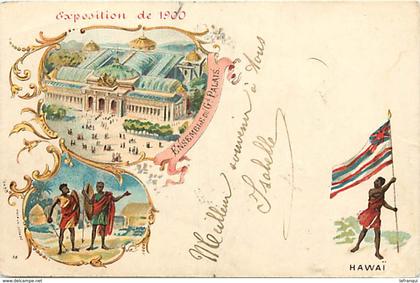 Exposition de 1900
ENSEMBLE DU Gd PALAIS
Meilleur souvenir à tous
Isabelle
HAWAÏ
delcampe.net
lafranqui